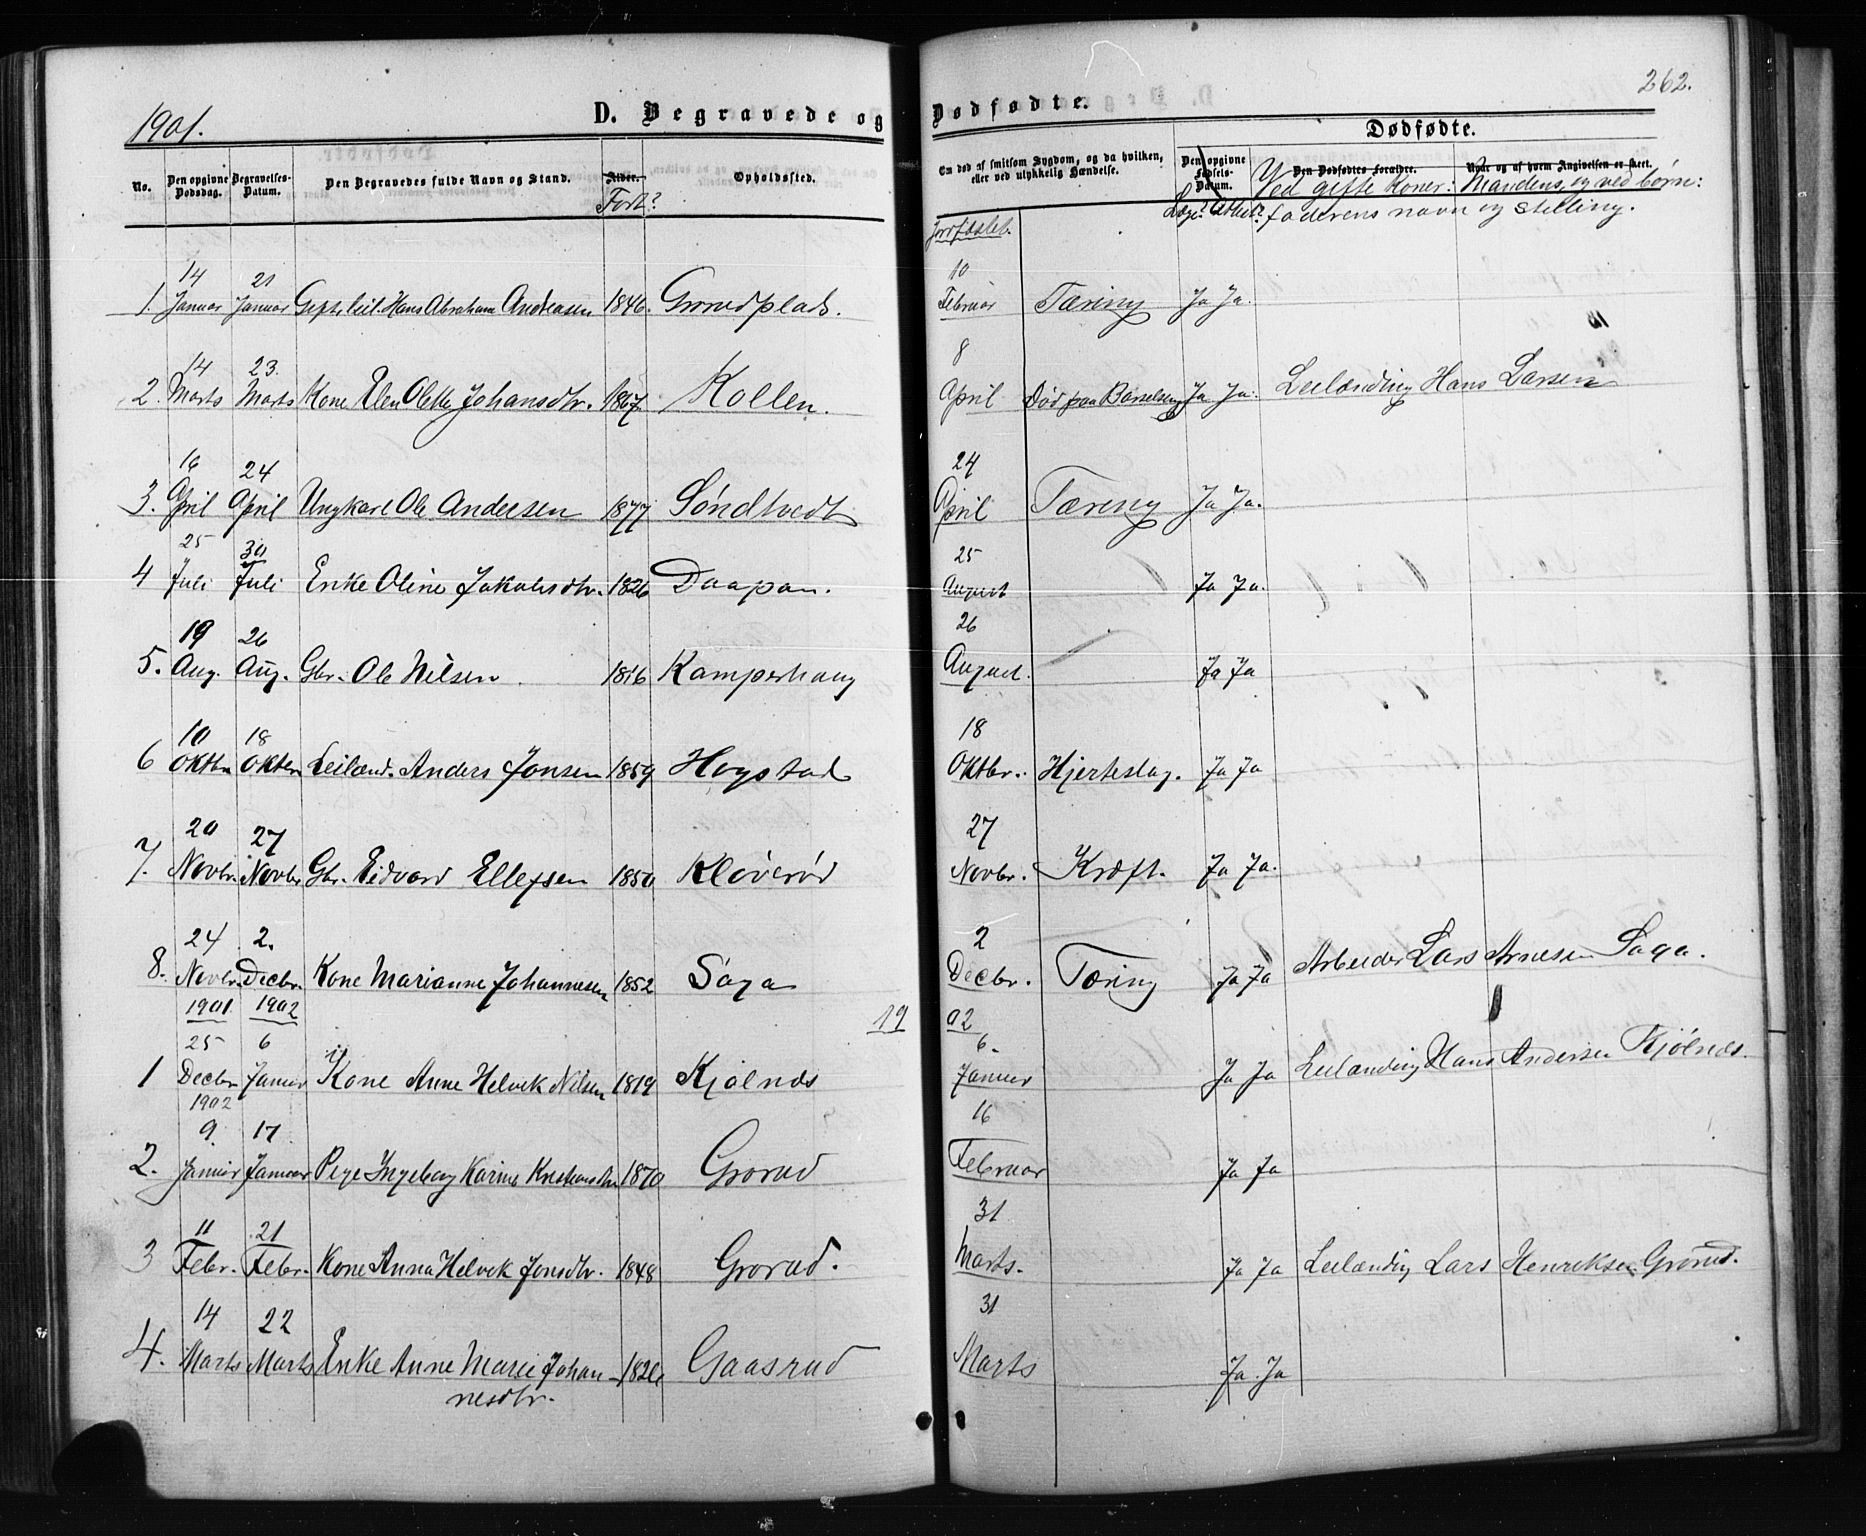 1901.
D. Begravede og
Dødfødte.
262.
No.
Den opgivne Dødsdag.
Begravelses-Datum.
Den Begravedes fulde Navn og Stand.
Alder.
Født?
Opholdssted.
Em død af smitsom Sygdom, og da hvilken, eller ved ulykkelig Hændelse.
Dødfødte.
Den opgivne Fødsels-Datum.
Den Dødfødtes Forældre.
Naar og af hvem Angivelsen er skeet.
Ved gifte Koner: Mandens, og ved børn:
faderens navn og stilling.
Jordfæstet.
14 21 10
1. Januar Januar Gift leil. Hans Abraham Andreasen 1846. Grorudplads. Februar Tæring Ja Ja.
14 23. 8
2. Marts Marts Kone Elen Olette Johansdtr. 1867. Kollen. April Død paa Barselseng Ja Ja. Leilænding Hans Larsen
16 24 24
3. April April Ungkarl Ole Andersen 1877 Søndtvedt April Tæring Ja Ja.
25 30 25
4 Juli Juli Enke Oline Jakobsdtr. 1826 Daapan. August Ja Ja.
19 26 26
5. Aug. Aug. Gbr. Ole Nilsen 1816 Kamperhaug August. Ja Ja
10 18 18
6 Oktbr Oktbr Leilænd. Anders Jonsen 1859 Hogstad Oktbr. Hjerteslag. Ja Ja
20 27 27
7. Novbr. Novbr Gbr. Eidvard Ellefsen 1850 Kløverød Novbr. Kræft. Ja Ja.
24 2. 2
8. Novbr. Decbr. Kone Marianne Johannesen 1852 Saga Decbr. Tæring Ja Ja Arbeider Lars Arnesen Saga.
1901 1902 19 02
25 6 6.
1 Decbr Januar Kone Anne Helvik Nilsen 1819 Kjølnæs Januar Ja Ja Leilænding Hans Andersen Kjølnæs.
1902
9. 17 16
2. Januar Januar Pige Ingeborg Karine Kristiansdtr 1870 Grorud Februar Ja Ja
11 21 31
3 Febr. Febr. Kone Anna Helvik Jonsdtr. 1848 Grorud. Marts. Ja Ja Leilænding Lars Henriksen Grorud.
14 22 31
4. Marts Marts Enke Anne Marie Johan- 1826 Gaasrud Marts Ja. Ja
nesdtr.